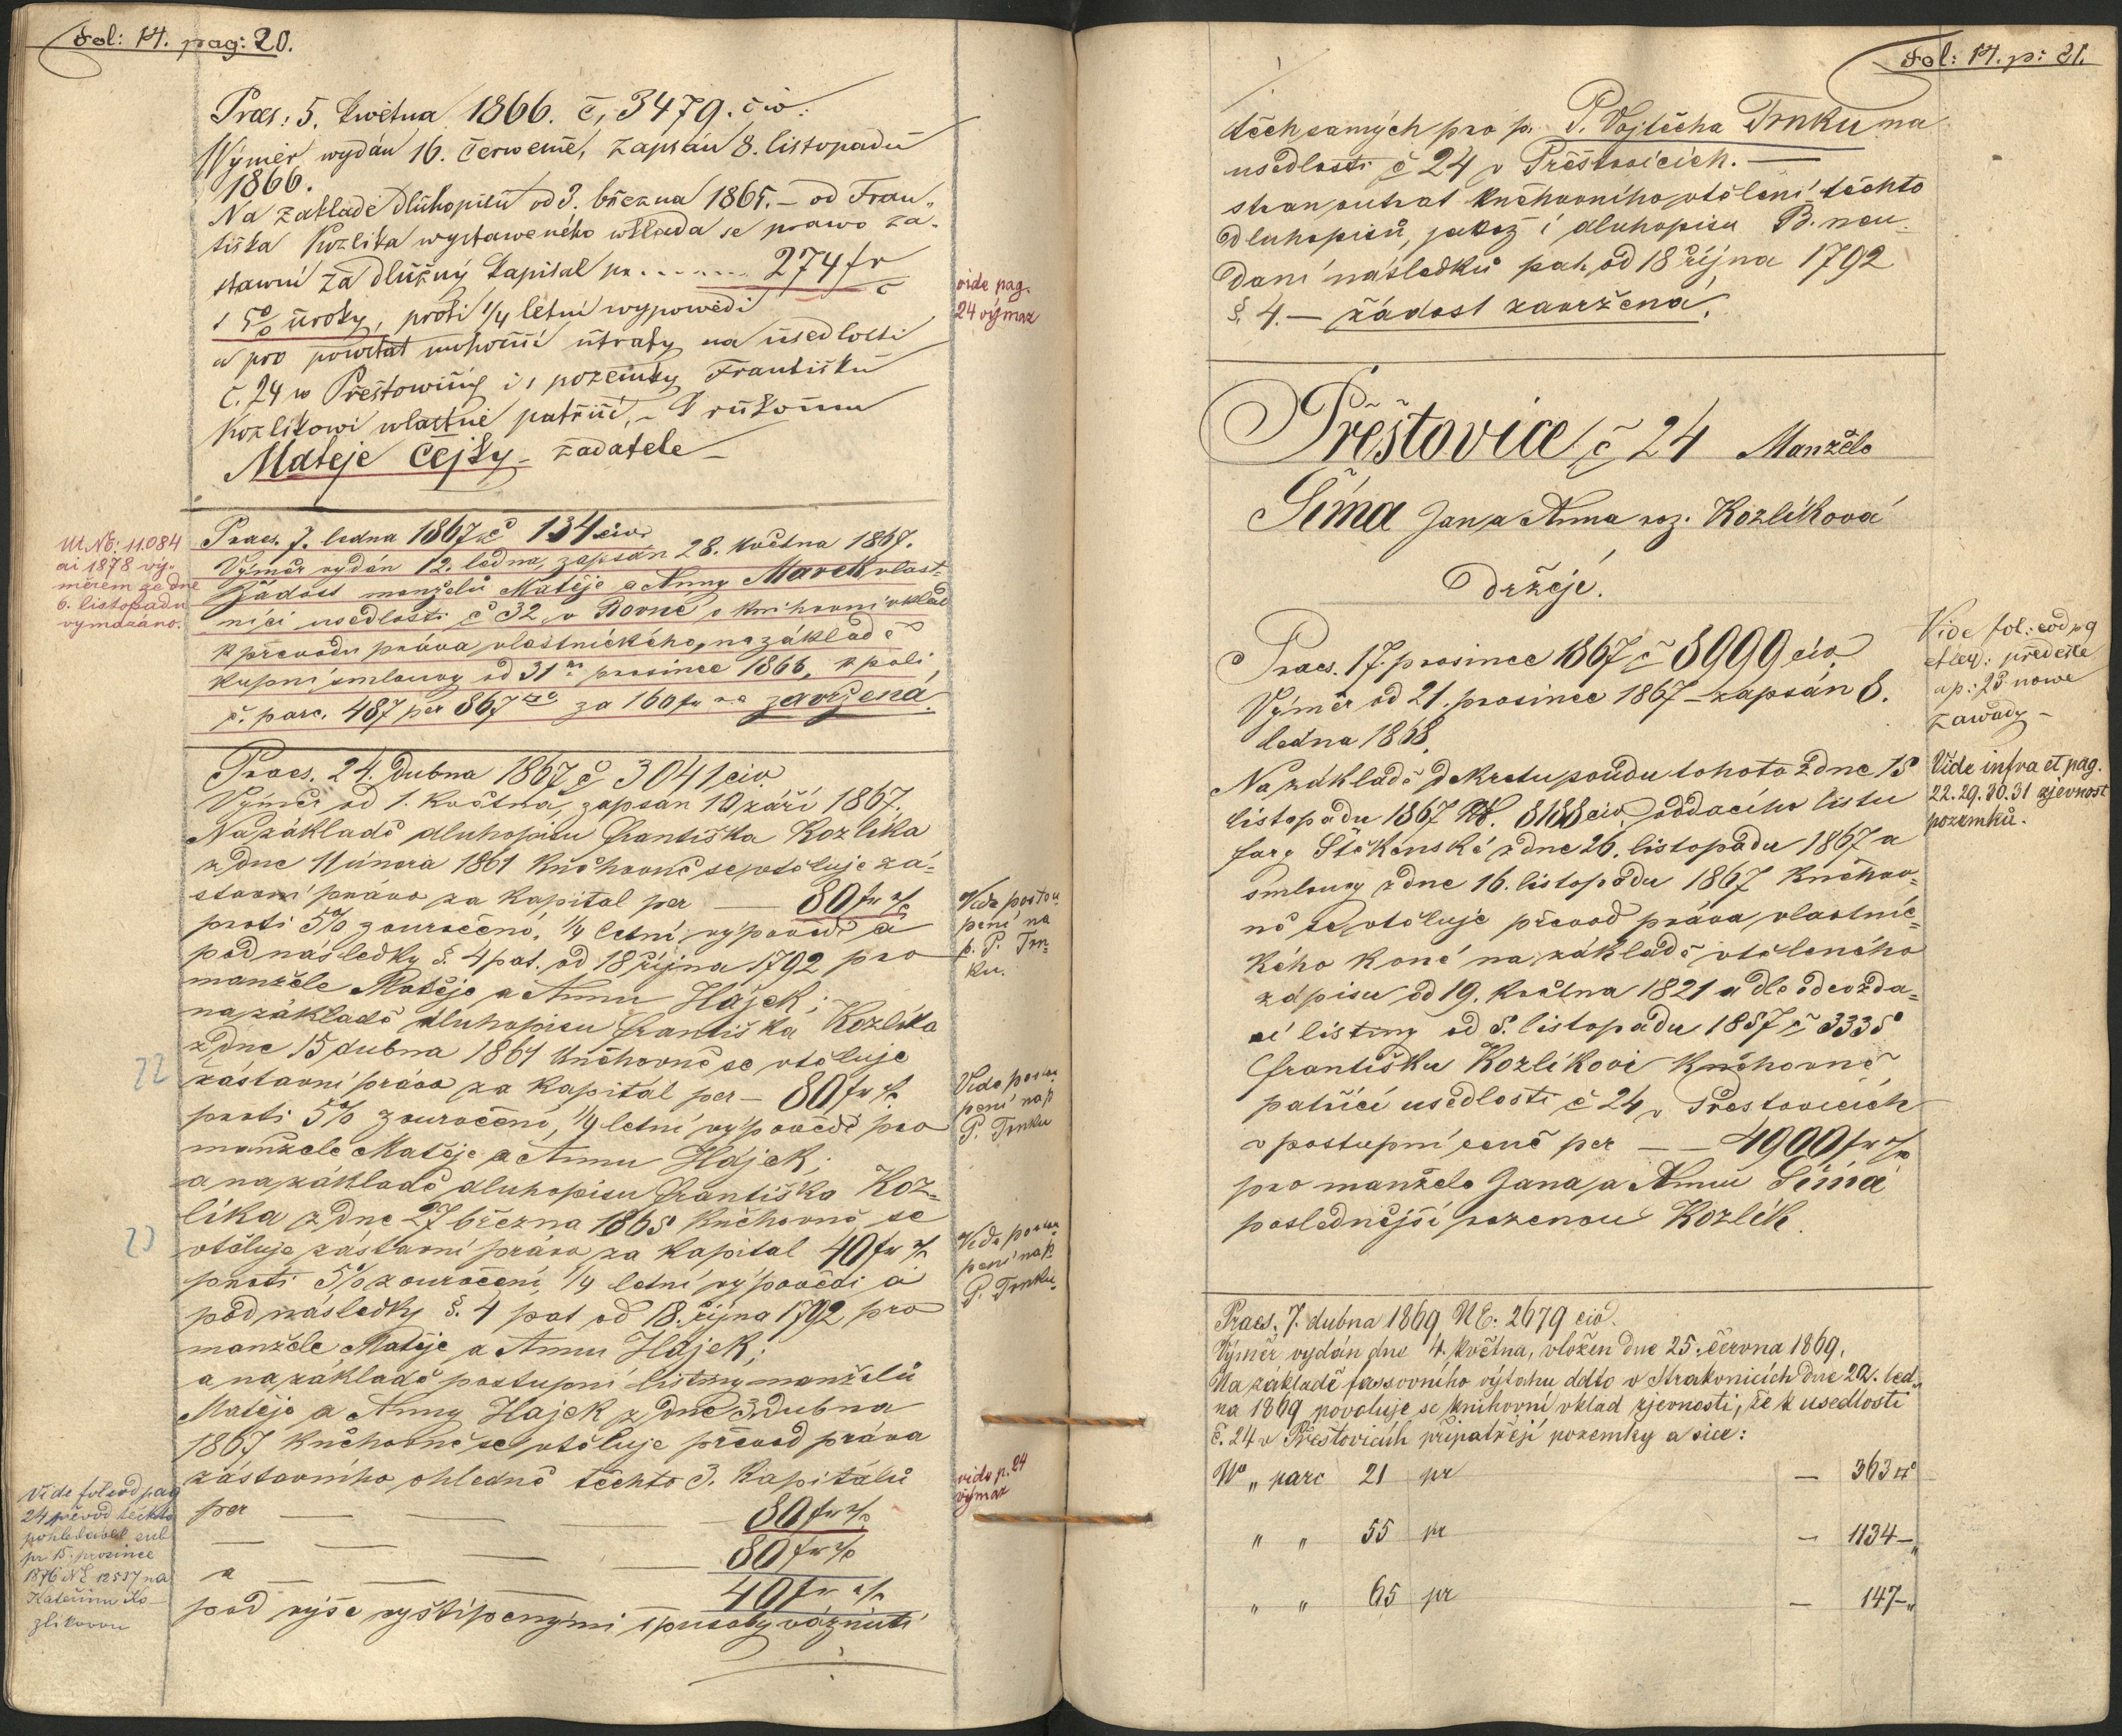 Fol: 14. pag: 20.
Praes: 5. května 1866. č, 3479. civ:
Výměr wydán 16. Června, zapsán 8. listopadu
1866.
Na základě dlůhopisů od 3. března 1865. – od Fran„
tiška Kozlíka wystaweného wkládá se prawo zá„
stawní za dlužný kapital pr. ........ 274 fr
s 5% ůroky, proti 1/4 letní wypowědi
a pro powstat mohoucí ůtraty na ůsedlosti
č. 24 w Přeštowicích i s pozemky Františku
Kozlíkowi wlastně patřící, – k růkoum
Matěje Čejky – žadatele –
vide pag.
24 výmaz
Praes. 7. ledna 1867 č 134 civ
Výměr vydán 12. ledna, zapsán 28. května 1867.
Žádost manželů Matěje a Anny Marek, vlast„
níci usedlosti č 32 v Rovné o knihovní vklad
k převodu práva vlastnického, na základě
kupní smlouvy od 31ho prosince 1866, k poli
č. parc. 487 per 867 za 160 fr zavržená.
NE: 11.084
ai 1878 vý„
měrem ze dne
6. listopadu
vymazáno.
Praes. 24. Dubna 1867 č 3041 civ
Výměr od 1. května, zapsán 10 září 1867.
Na základě dluhopisu Františka Kozlíka
z dne 11 února 1861 kněhovně se vtěluje zá„
stavní právo za kapitál per — 80 fr
proti 5% zouročení, 1/4 letní výpovědi a
pod následky §. 4 pat. od 18 října 1792 pro
manžele Matěje a Annu Hájek;
na základě dluhopisu Františka Kozlíka
z dne 15 dubna 1861 kněhovně se vtěluje
zástavní právo za kapitál per – 80 fr
proti 5% zouročení, 1/4 letní výpovědi pro
manžele Matěje a Annu Hájek;
a na základě dluhopisu Františka Koz„
líka z dne 27 března 1865 kněhovně se
vtěluje zástavní právo za kapitál 40 fr
proti 5% zouročení, 1/4 letní výpovědi a
pod následky §. 4 pat od 18. října 1792 pro
manžele Matěje a Annu Hájek;
a na základě postupní listiny manželů
Matěje a Anny Hájek z dne 3. dubna
1867 kněhovně se vtěluje převod práva
zástavního ohledně těchto 3. kapitálů
per — — — 80 fr
— — — 80 fr
a — — — 40 fr
pod výše vyštípenými spusoby váznutí
Vide postou
pení na
p. P. Trn„
ku.
Vide postou
pení na p
P. Trnku
Vide postou
pení na p.
P. Trnku.
vide p. 24
výmaz
22
Vide fol eod pag
24 převod těchto
pohledávek sub
pr 15. prosince
1876 NE 12557 na
Kateřinu Ko„
zlíkovou
Fol: 14. p: 21.
těch samých pro p. P. Vojtěcha Trnku na
usedlosti č 24 v Přešťovicích. —
stran outrat kněhovního vtělení těchto
dluhopisů, jakož i dluhopisu B. neu„
dání následků pat. od 18 října 1792
§. 4. — žádost zavržená.
Přešťovice č 24 Manželé
Šíma Jan a Anna roz. Kozlíková
Držejé.
Praes. 17. prosince 1867 č 8999 civ.
Výměr od 21. prosince 1867 – zapsán 8.
ledna 1868.
Na základě dekretu soudu tohoto z dne 15
listopadu 1867 N. 8188 civ, oddacího listu
fary Štěkenské z dne 26. listopadu 1867 a
smlouvy z dne 16. listopadu 1867 kněhov„
ně se vtěluje převod práva vlastnic„
kého koně na základě vtěleného
zápisu od 19. května 1821 a dle odevzda„
cí listiny od 8. listopadu 1857 č 3335
Františku Kozlíkovi kněhovně
patřící usedlosti č 24 v Přestovicích
v postupní ceně per — — 4900 fr
pro manžele Jana a Annu Šíma
poslednější rozenou Kozlík.
Vide fol: eod pg
předešlé
a p: 23 nowé
zawady –
Vide infra et pag.
22. 29. 30. 31 zjevnost
pozemků.
Praes. 7. dubna 1869 NE: 2679 civ.
Výměr vydán dne 4. května, vložen dne 25. června 1869.
Na základě fassovního výtahu ddto v Strakonicích dne 22. led„
na 1869 povoluje se knihovní vklad zjevnosti, že k usedlosti
č. 24 v Přešťovicích připatřejí pozemky a sice:
No „ parc 21 pr — 363 □°
„ „ 55 pr — 1134 – „
„ „ 65 pr — 147 – „